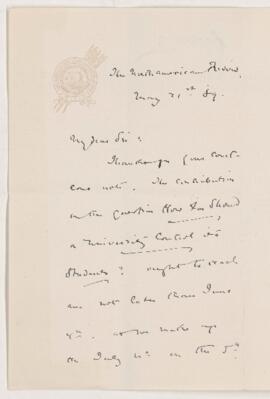 The North American Review,
May 21st 89.
My dear Sir:
Thank you for your court-
eous note. The contribution
on the question How Far Should
a University Control its
Students? ought to reach
me not later than June
4th. as we make up
the July no. on the 5th